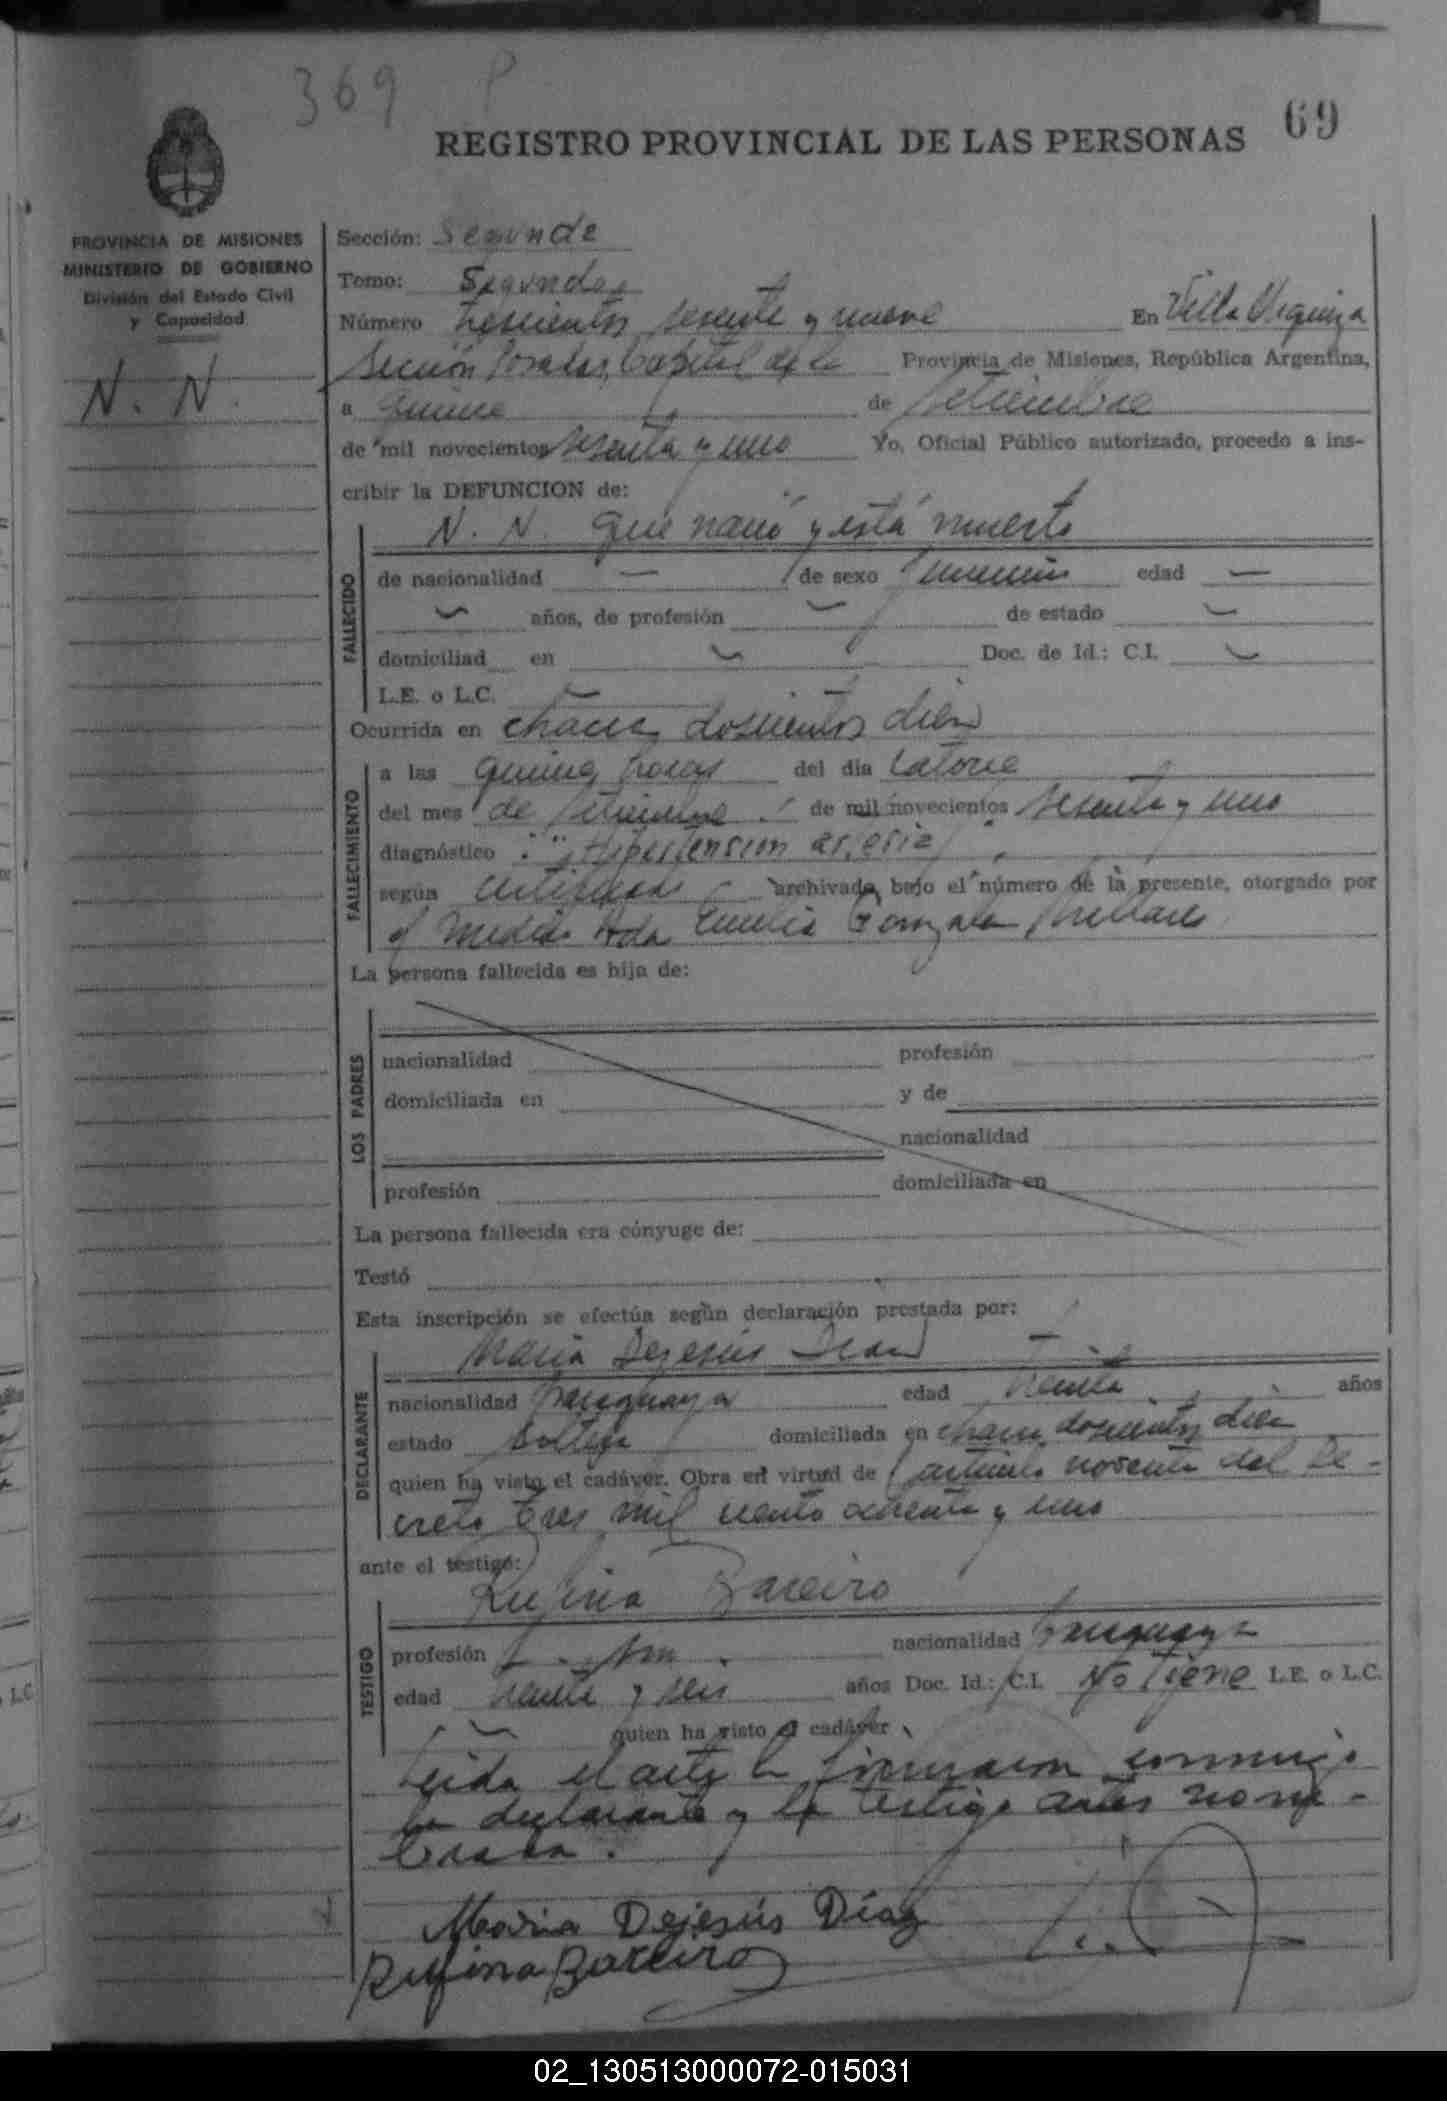 369 P
69
REGISTRO PROVINCIAL DE LAS PERSONAS
PROVINCIA DE MISIONES
MINISTERIO DE GOBIERNO
División del Estado Civil
y Capacidad
N. N.
Sección: Segunda
Tomo: Segundo
Número trescientos sesenta y nueve En Villa Urquiza
Sección Posadas, Capital de la Provincia de Misiones, República Argentina,
a quince de setiembre
de mil novecientos sesenta y uno Yo, Oficial Público autorizado, procedo a ins-
cribir la DEFUNCION de:
N. N. que nació y está muerto
FALLECIDO
de nacionalidad — de sexo femenino edad —
— años, de profesión — de estado —
domiciliad en — Doc. de Id.: C.I. —
L.E. o L.C. —
Ocurrida en chacra doscientos diez
FALLECIMIENTO
a las quince horas del día catorce
del mes de setiembre de mil novecientos sesenta y uno
diagnóstico "Hipertension
según certificado archivado bajo el número de la presente, otorgado por
el Medico Emilio Gonzalez
La persona fallecida es hija de:
LOS PADRES
nacionalidad profesión
domiciliada en y de
nacionalidad
profesión domiciliada en
La persona fallecida era cónyuge de:
Testó
Esta inscripción se efectúa según declaración prestada por:
Maria Dejesús Diaz
DECLARANTE
nacionalidad paraguaya edad treinta años
estado soltera domiciliada en chacra doscientos diez
quien ha visto el cadáver. Obra en virtud de artículo noventa del De-
creto tres mil ciento ochenta y uno
ante el testigo:
Rufina Bareiro
TESTIGO
profesión nacionalidad paraguaya
edad treinta y seis años Doc. Id.: C.I. No tiene L.E. o L.C.
— quien ha visto el cadáver
Leida el acta la firmaron conmigo
la declarante y la testigo antes nom-
brada.
Maria Dejesús Díaz
Rufina Bareiro
02_130513000072-015031